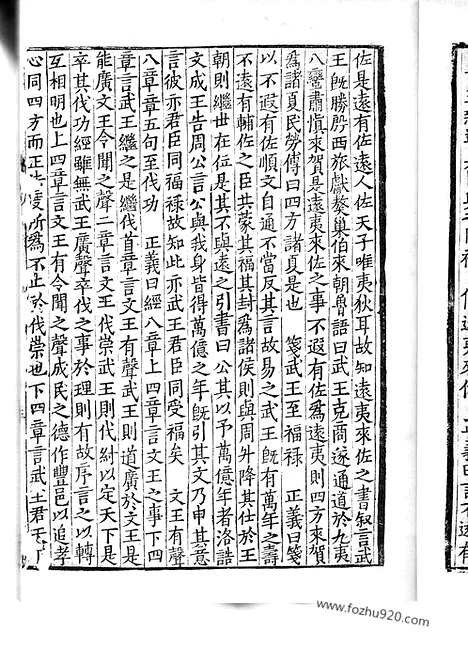 佐是遠有佐遠人佐天子唯夷狄耳故知遠夷來佐之書叙言武
王旣勝殷西旅獻獒巢伯來朝魯語曰武王克商遂通道於九夷
八蠻肅愼來賀是遠夷來佐之事不遐有佐爲遠夷則四方來賀
爲諸夏民勞傳曰四方諸夏是也 箋武王至福祿 正義曰箋
以不遐有佐順文自通不當反其言故易之武王旣有萬年之壽
不遠有輔佐之臣共蒙其福其封爲諸侯則與周升降其仕於王
朝則繼世在位是其不與遠之引書曰公其以予萬億年者洛誥
文成王告周公言公與我身皆得萬億之年旣引其文乃申其意
言彼亦君臣同福祿故知此亦武王君臣同受福矣 文王有聲
八章章五句至伐功 正義曰經八章上四章言文王之事下四
章言武王繼之是繼伐首章言文王有聲武王則道廣於文王是
能廣文王令聞之聲二章言文王伐崇武王則伐紂以定天下是
卒其伐功經雖無武王廣聲卒伐之事於理則有故序言之以轉
互相明也上四章言文王有令聞之聲成民之德作豐邑以追孝
心同四方而正法度所爲不止於伐崇也下四章言武王君天下
www.fozhu920.com